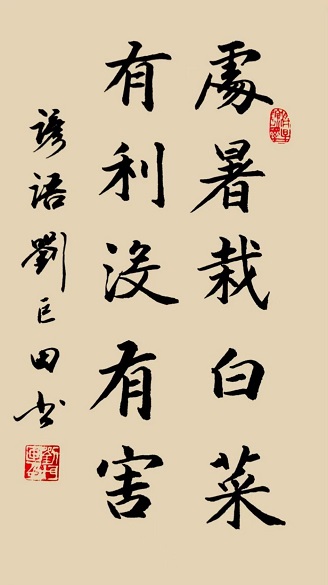 處暑栽白菜
有利沒有害
諺語劉巨田书